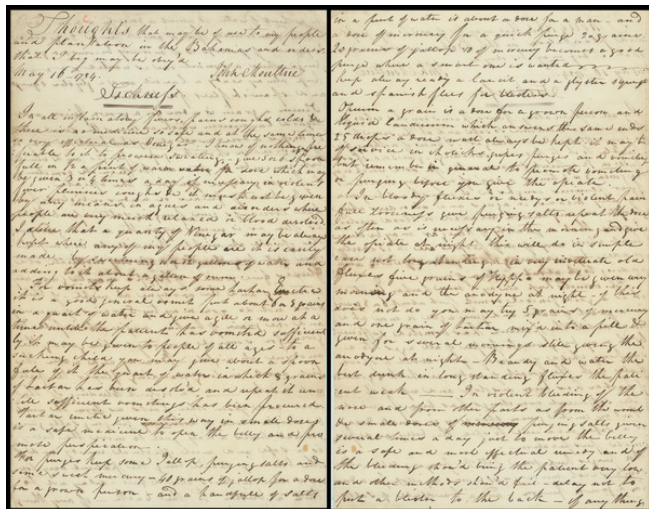 Thoughts that may be of use to my people
and plantation in the Bahamas and orders
that I beg may be obey'd
May 16 1794. John Moultrie
Sickness
In all inflamatory fevers, pains coughs colds &
there is no medicine so safe and at the same time
so very effectual as Vinegar I know of nothing
equal to it to procure Sweating, give 3 or 4 spoon
full in for a pint of warm water for dose which may
be given 3 or 4 times a day if necessary, in violent
fever pleurisies coughs &c it must not be given
by any means in agues and disorders where
people are very much relaxed or blood disolved.
I desire that a quantity of Vinegar may be always
kept where any of my people are it is easily
made by of water and
adding to it about a gallon of rum.
For vomits keep always some Tartar Emetic
it is a good general vomit put about 6 or 8 grains
in a quart of water and give a gill or more at a
time untill the patient has vomited sufficient
ly. So may be given to people of all ages to a
sucking child you may give about a spoon
full of it the quart of water in which 8 grains
of tartar has been disolved and repeat it un
till sufficient vomitings has been procured.
Tartar emetic given this way in small doses
is a safe medicine to open the belly and pro
mote perspiration
For purges keep some Jallop, purging salts and
some mercury - 40 grains of jallop for a dose
for a grown person - and a handfull of salts
in a pint of water is about a dose for a man - and
a dose of mercury for a quick purge 20 grains
20 grains of jallop 10 of mercury becomes a good
purge where a smart one is wanted
keep always ready a lancit and a glyster syringe
and spanish flies for blisters
Opium a grain is a dose for a grown person and
liquid laudanum which answers the same end
25 drops a dose must always be kept. it may be
of service in cholicks, gripes purges and vomiting
but remember in general to promote vomiting
or purging before you give the opiate
In bloody fluxes or needys or violent pain
full looseness give purging salts repeat the dose
as often as is necessary in the morning and give
the opiate at night. this will do in simple
cases not long standing in very inveterate old
fluxes five grains of Ippica may be given every
morning and the anodyne at night - if this
does not do you may try 5 grains of mercury
and one grain of tartar mix'd into a pill &
given for several mornings still giving the
anodyne at nights - Brandy and water the
best drink in long standing fluxes the pati
ent weak In violent bleeding of the
nose and from other parts as from the womb
&c small doses of purging salts given
several times a day just to move the belly
is a safe and most effectual remedy and if
the bleeding shou'd bring the patient very low
and other methods shou'd fail - delay not to
put a blister to the back - if any thing